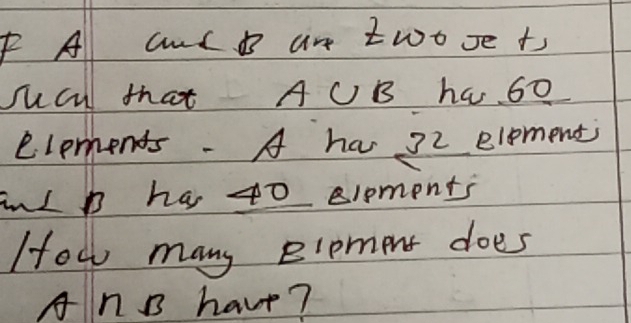 F A and B are two sets
such that A ∪ B has 60
elements. A has 32 elements
and B has 40 elements
How many element does
A ∩ B have?